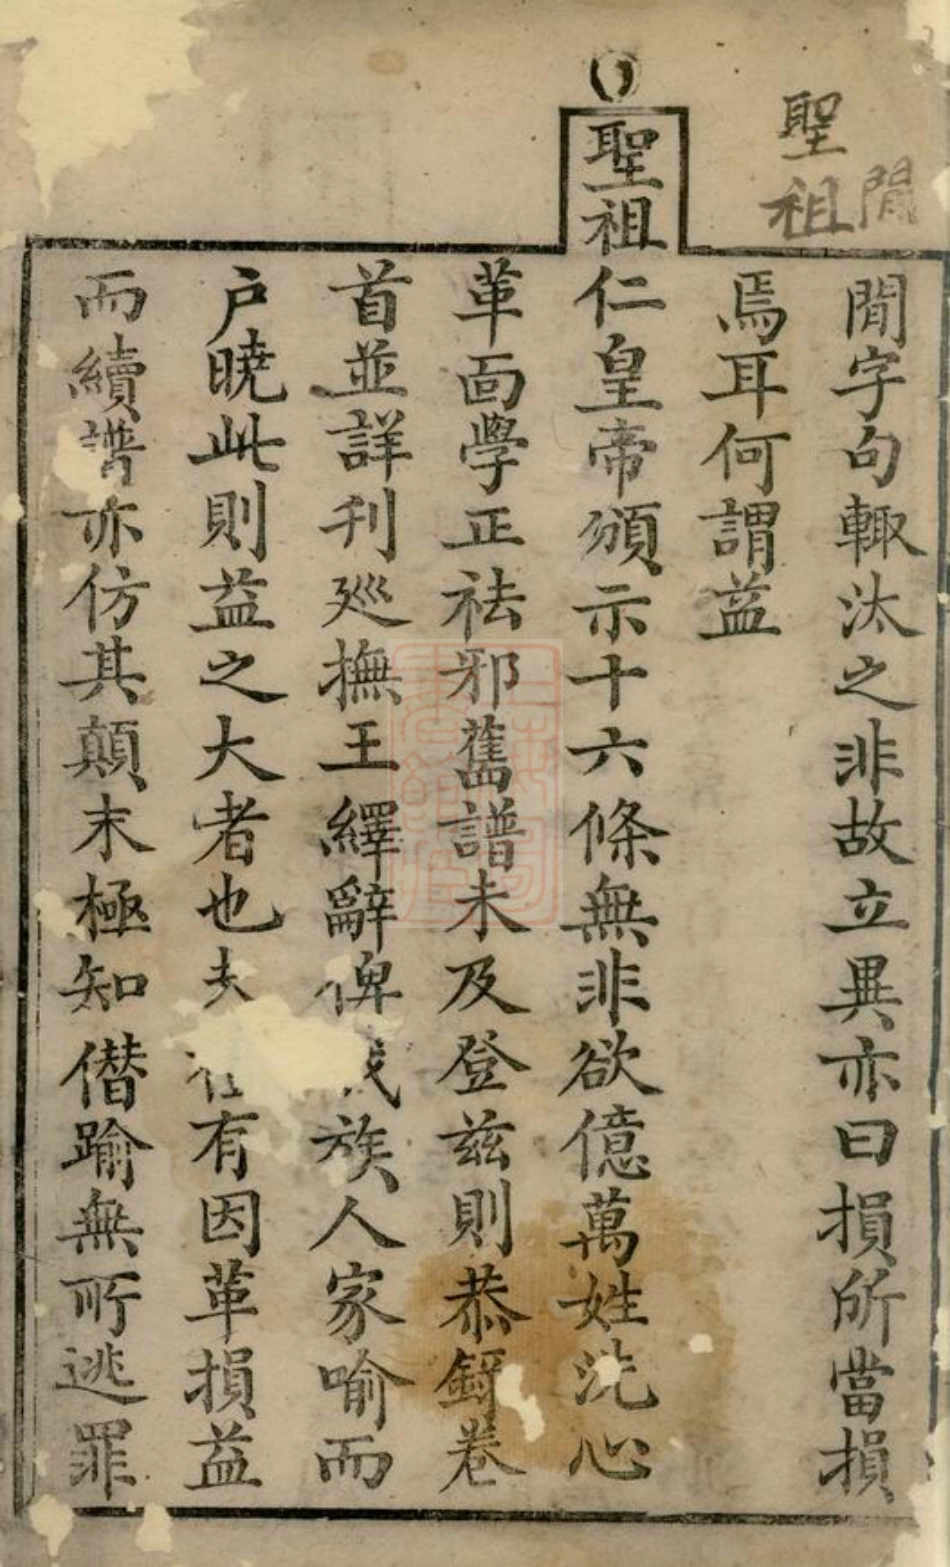 聖祖
閒
閒字句輙汰之非故立異亦曰損所當損
焉耳何謂益
聖祖仁皇帝頒示十六條無非欲億萬姓洗心
革面學正祛邪舊譜未及登茲則恭鋟卷
首並詳刊廵撫王繹辭俾我族人家喻而
户曉此則益之大者也夫有因革損益
而續譜亦仿其顛末極知僭踰無所逃罪